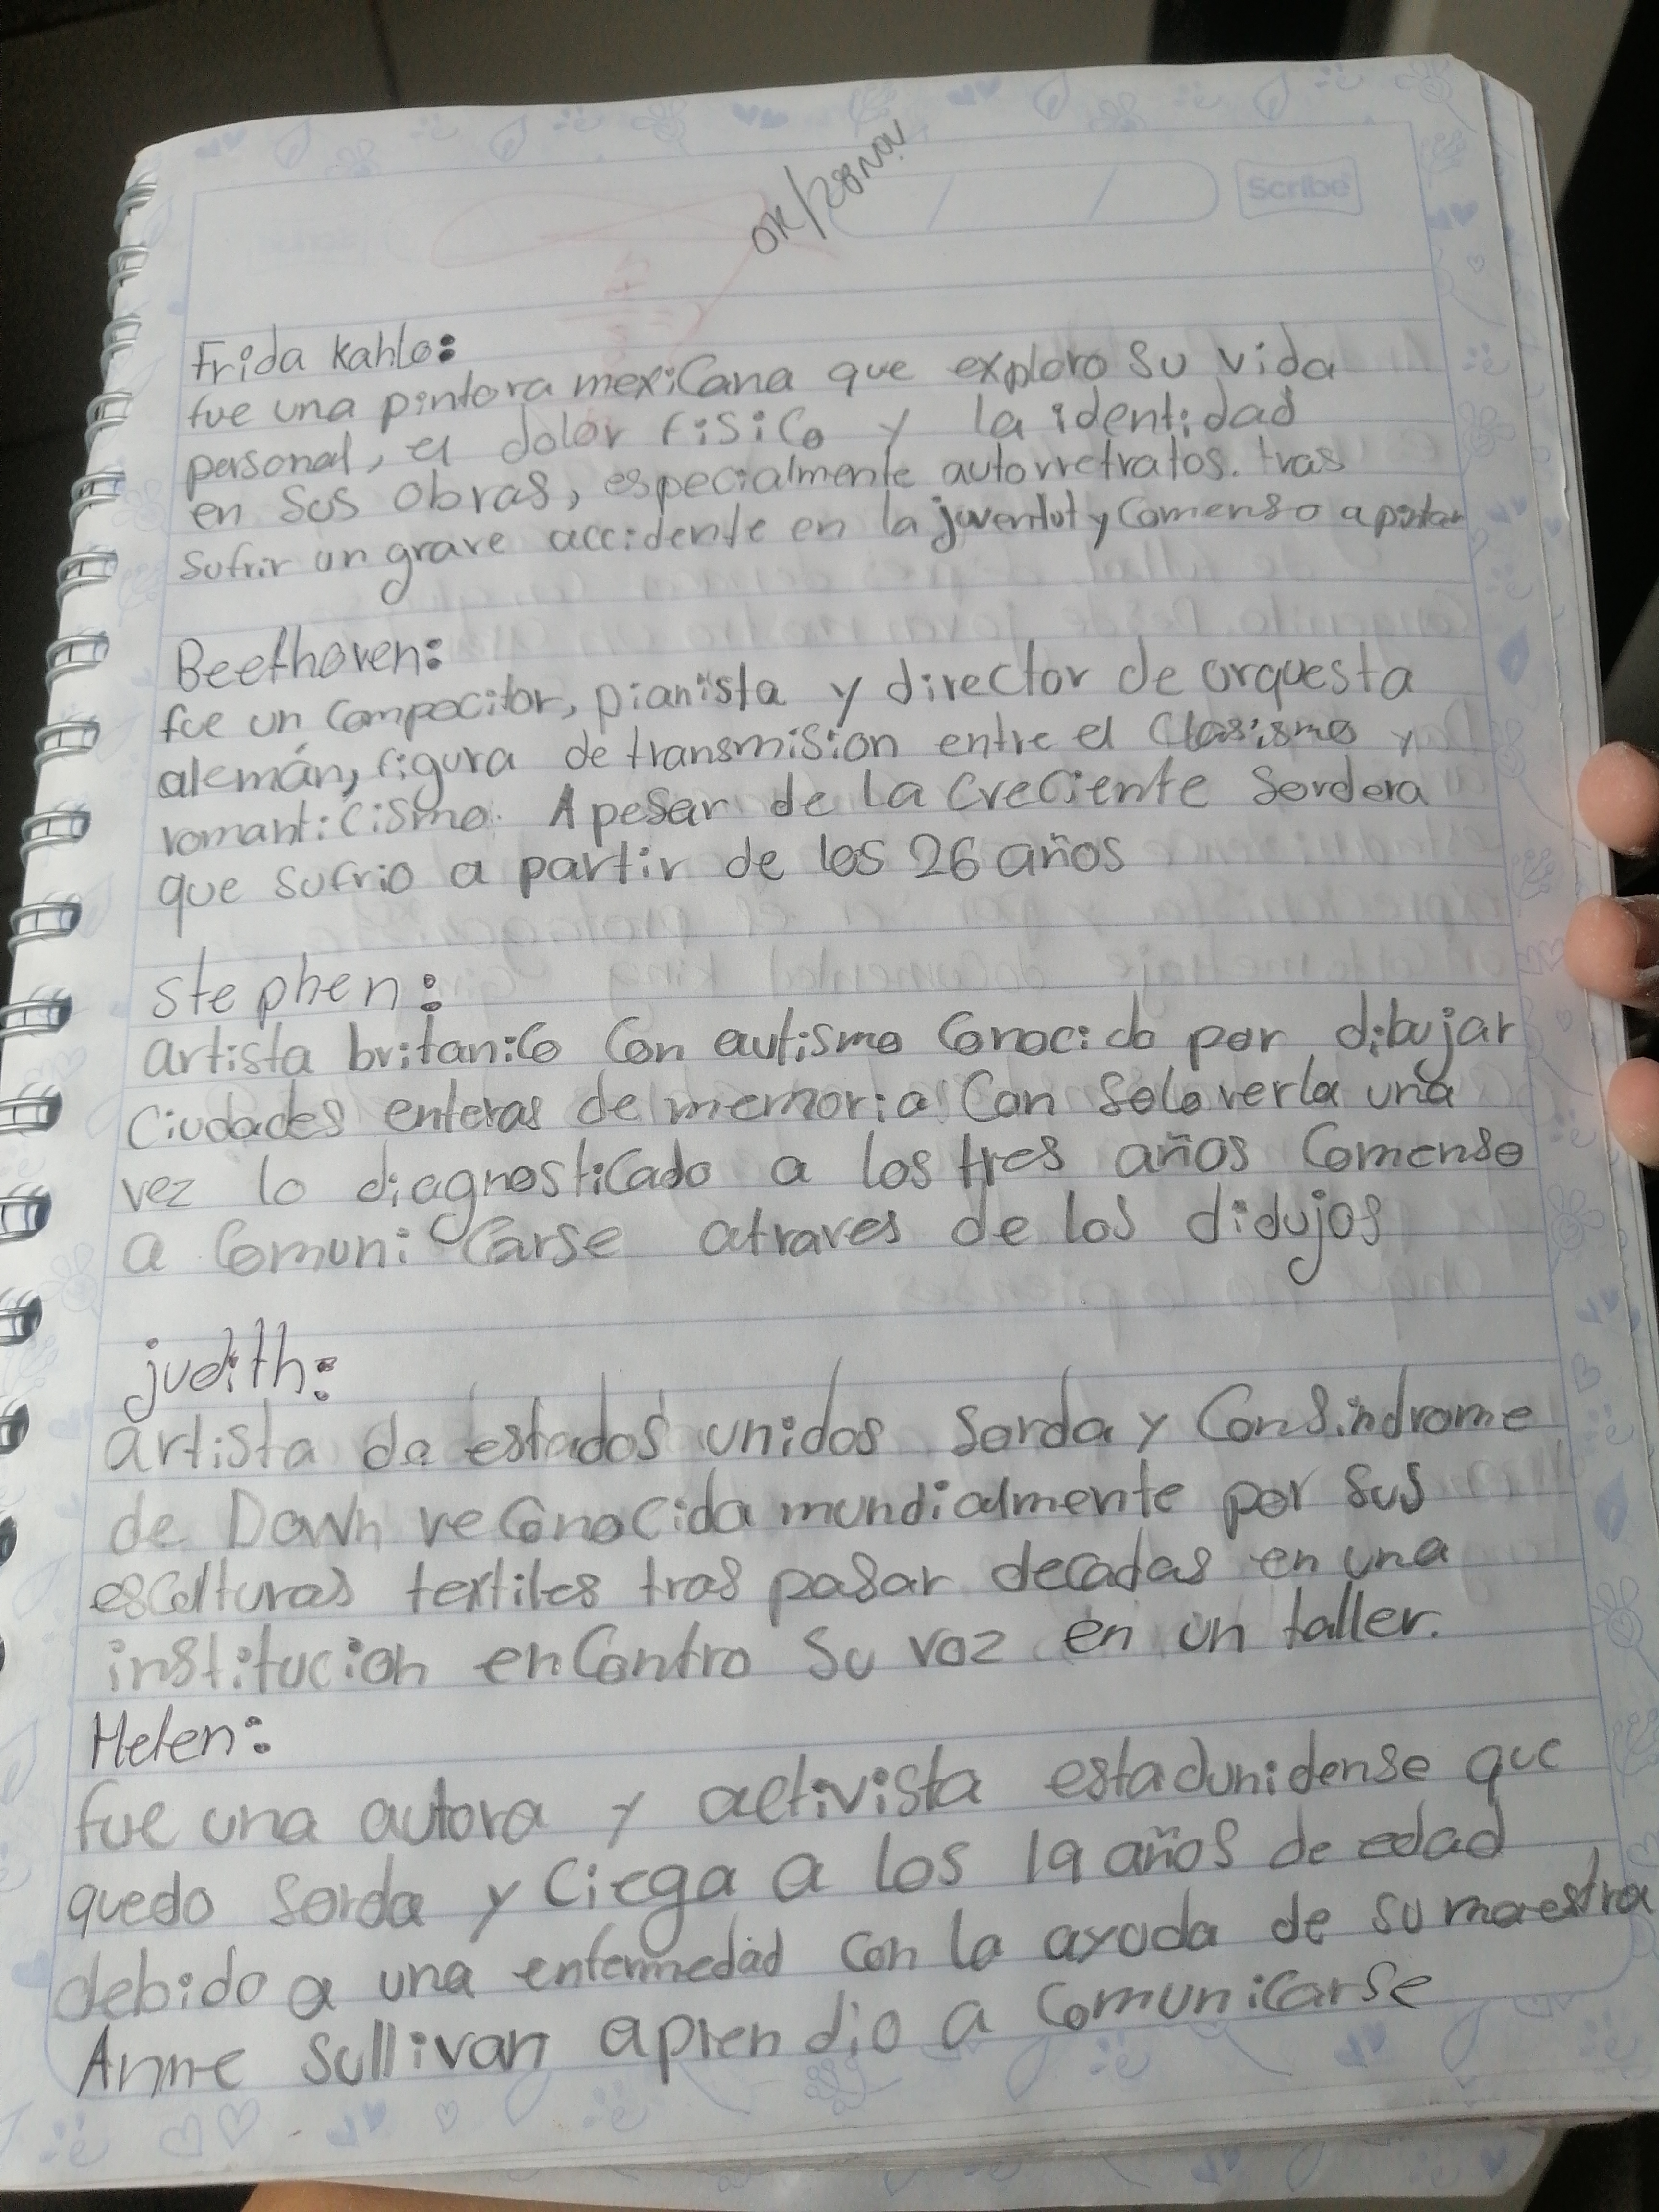 OK/28nov
Scribe
Frida Kahlo:
fue una pintora mexicana que exploro su vida
personal, el dolor fisico y la identidad
en sus obras, especialmente autorretratos. tras
sufrir un grave accidente en la juventut y comenso a pintar
Beethoven:
fue un compocitor, pianista y director de orquesta
alemán, figura de transmision entre el clasismo y
romanticismo. A pesar de la creciente sordera
que sufrio a partir de los 26 años
stephen:
artista britanico con autismo conocido por dibujar
ciudades enteras de memoria con solo verla una
vez lo diagnosticado a los tres años comenso
a comunicarse atraves de los didujos
judith:
artista de estados unidos sorda y con sindrome
de Down reconocida mundialmente por sus
escolturas textiles tras pasar decadas en una
institucion encontro su voz en un taller.
Helen:
fue una autora y activista estadunidense que
quedo sorda y ciega a los 19 años de edad
debido a una enfermedad con la ayuda de su maestra
Anne Sullivan aprendio a comunicarse